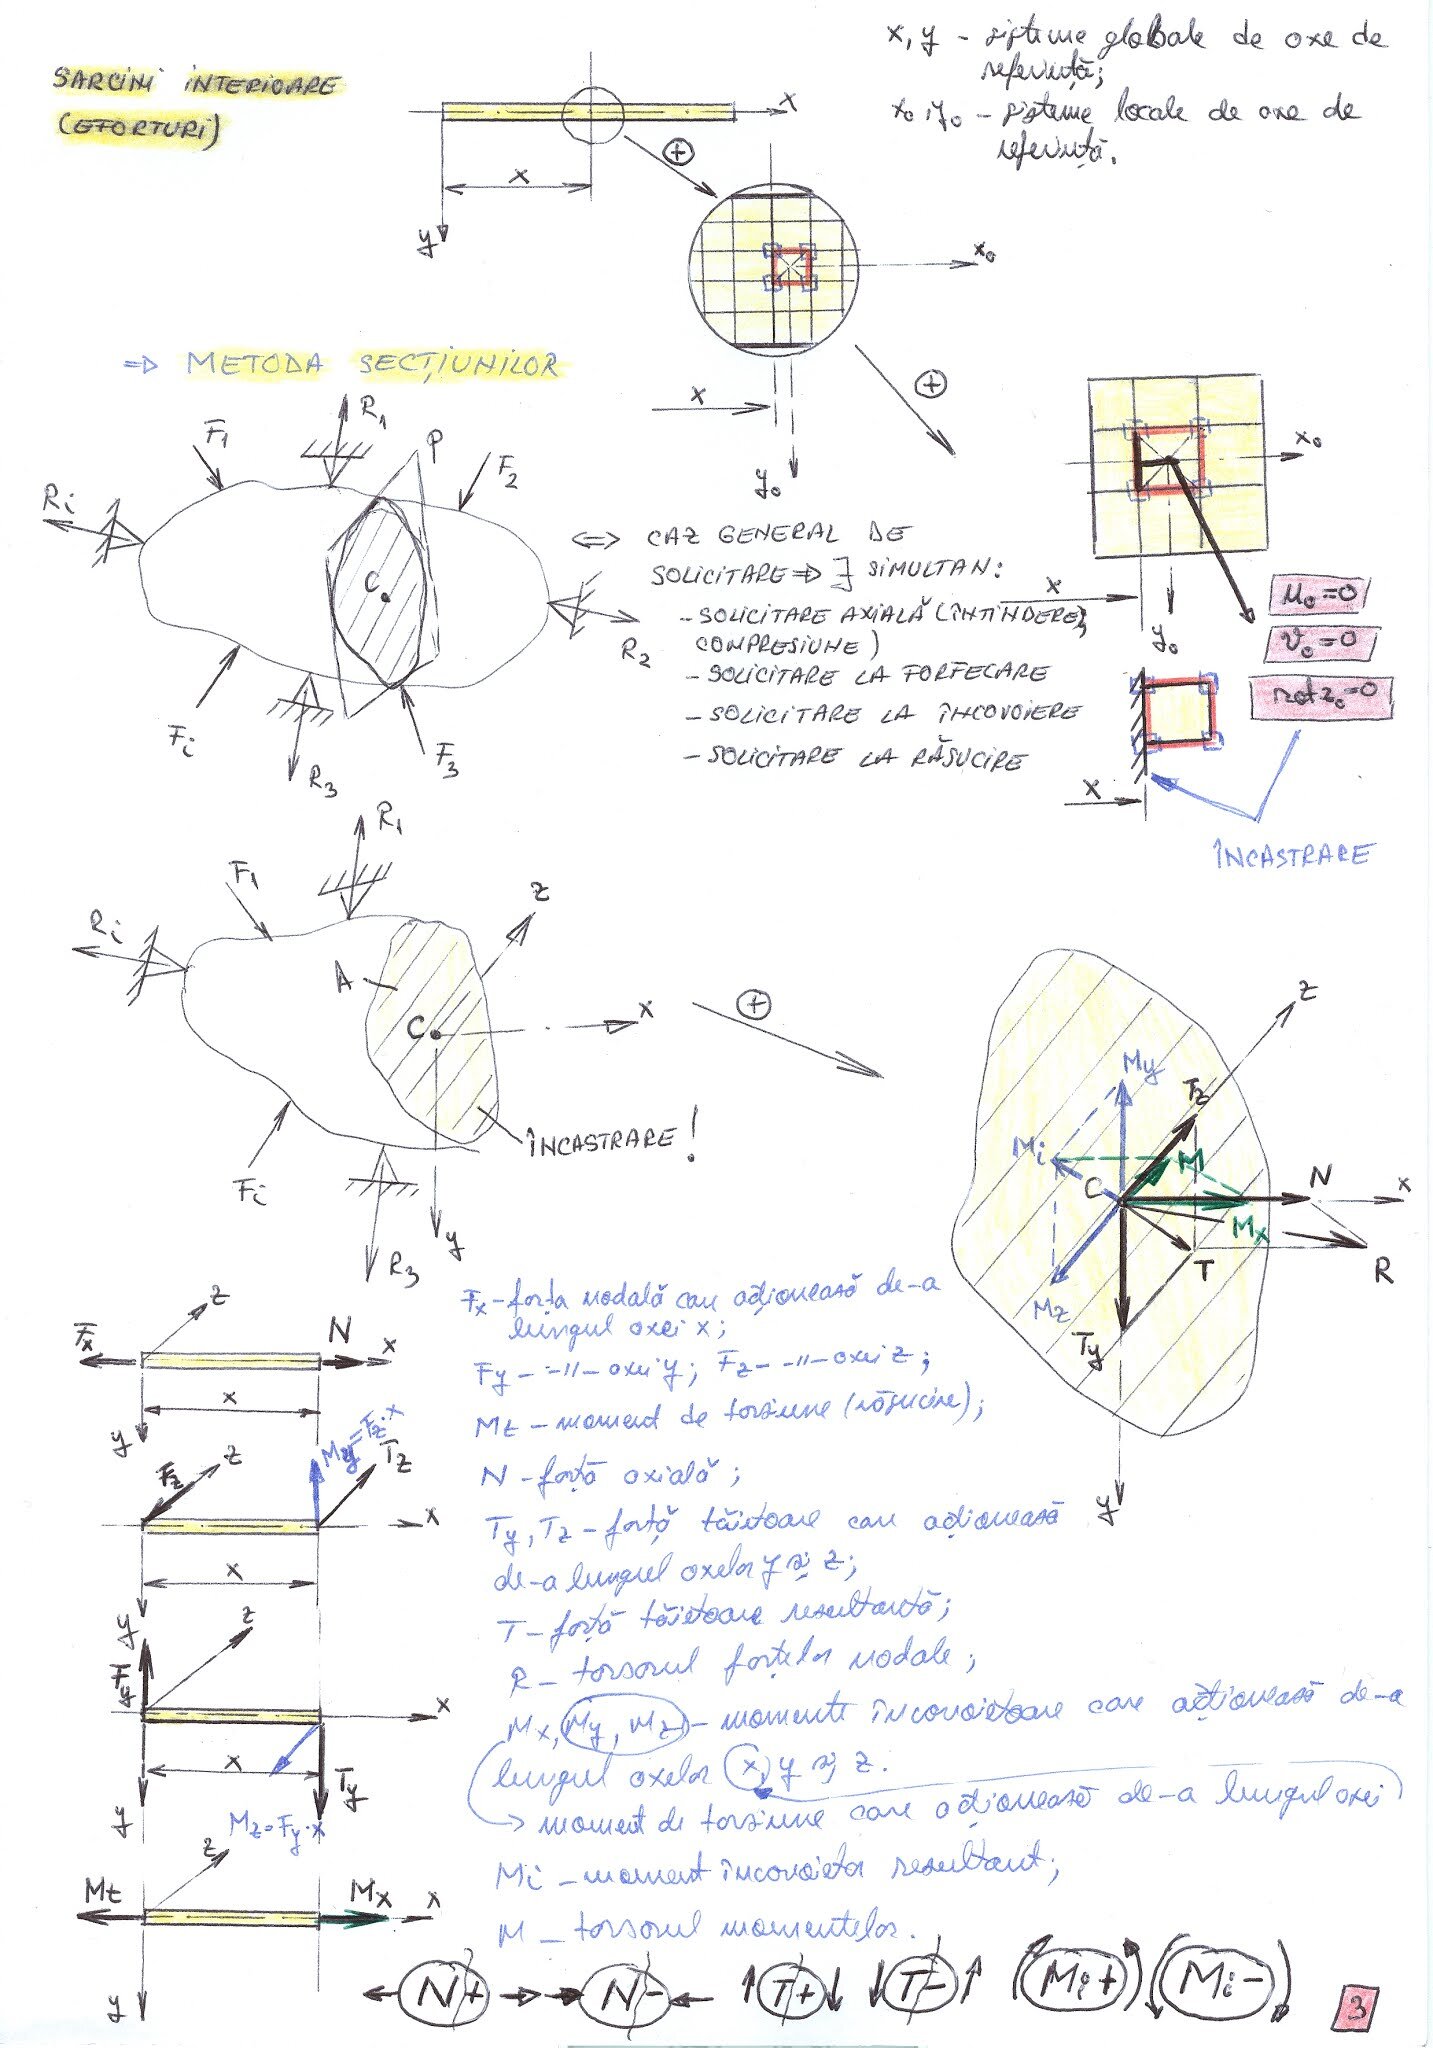 SARCINI INTERIOARE
(EFORTURI)
x, y - sisteme globale de axe de
referință;
x₀, y₀ - sisteme locale de axe de
referință.
x
x
+
y
x₀
x
y₀
+
⇒ METODA SECȚIUNILOR
F₁
R₁
P
F₂
Ri
C
R₂
Fi
R₃
F₃
⇔ CAZ GENERAL DE
SOLICITARE ⇒ ∃ SIMULTAN:
- SOLICITARE AXIALĂ (ÎNTINDERE;
COMPRESIUNE)
- SOLICITARE LA FORFECARE
- SOLICITARE LA ÎNCOVOIERE
- SOLICITARE LA RĂSUCIRE
x₀
x
y₀
u₀=0
v₀=0
rotz₀=0
x
ÎNCASTRARE
R₁
F₁
z
Ri
A
C
x
+
ÎNCASTRARE!
Fi
y
R₃
z
My
Tz
Mi
M
C
N
x
Mx
T
R
Mz
Ty
y
z
Fx
N
x
x
y
Fx - forța nodală care acționează de-a
lungul axei x;
Fy - -"- axei y; Fz - -"- axei z;
Mt - moment de torsiune (răsucire);
N - forță axială;
Ty, Tz - forță tăietoare care acționează
de-a lungul axelor y și z;
T - forță tăietoare resultantă;
R - torsorul forțelor nodale;
Mx, My, Mz - momente încovoietoare care acționează de-a
lungul axelor x, y și z.
→ moment de torsiune care acționează de-a lungul axei
Mi - moment încovoietor resultant;
M - torsorul momentelor.
Fz
z
My=Fz·x
Tz
x
x
y
z
Fy
x
x
y
Ty
Mz=Fy·x
z
Mt
Mx
x
y
N+
N-
T+
T-
Mi+
Mi-
3